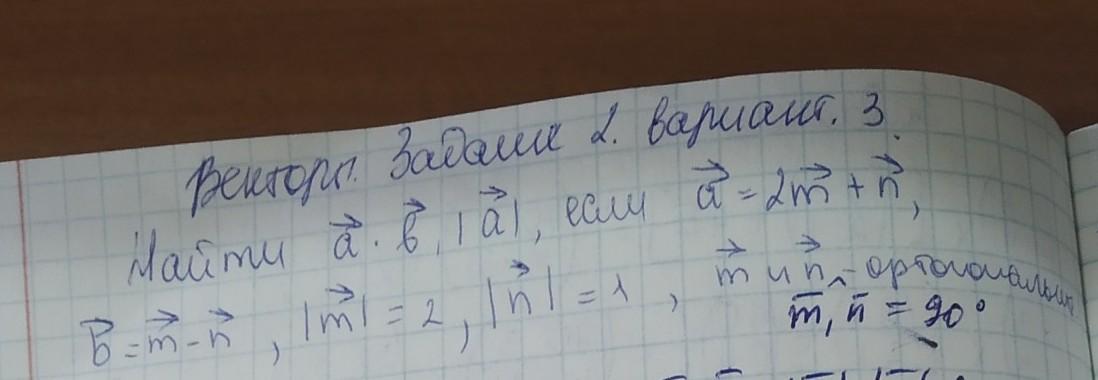 Векторы. Задание 2. вариант. 3.
Найти a⃗ · b⃗, |a⃗|, если a⃗ = 2m⃗ + n⃗,
b⃗ = m⃗ - n⃗, |m⃗| = 2, |n⃗| = 1, m⃗ и n⃗ - ортогональны
m̄, n̄ = 90°